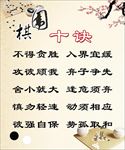 围棋
十诀
不得贪胜 入界宜缓
攻彼顾我 弃子争先
舍小就大 逢危须弃
慎勿轻速 动须相应
彼强自保 势孤取和